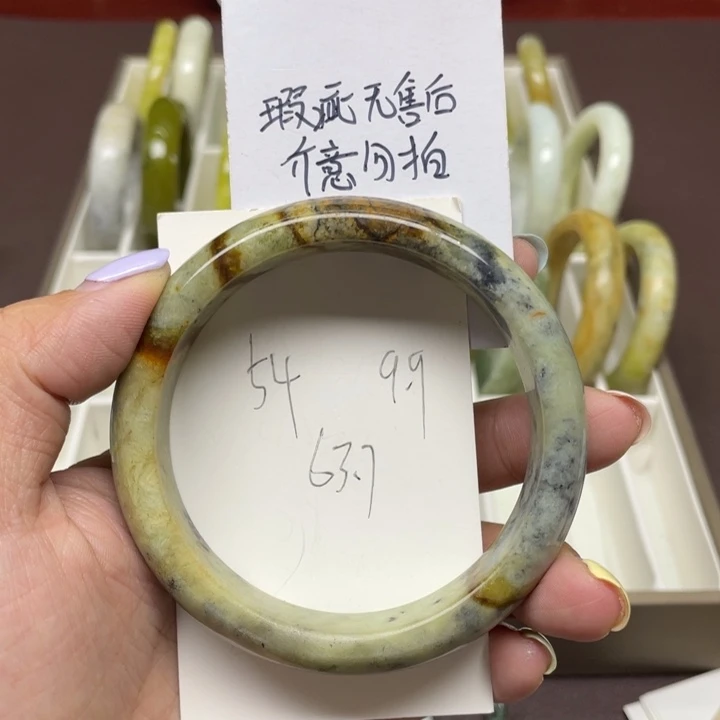 瑕疵无售后
介意勿拍
54 9.9
63.7